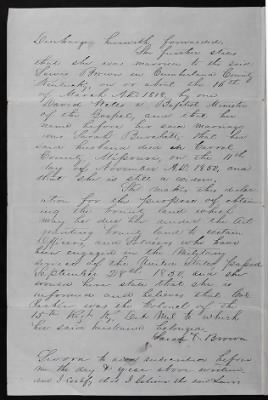 Discharge herewith forwarded.
She further states
that she was married to the said
Lewis Brown in Cumberland County
Kentucky, on or about the 15th
of March A.D. 1818, by one
David a Baptist Minister
of the Gospel, and that her
name before her said marriage
was Sarah that her
said husband died in Carrol
County, Missouri, on the 11th
day of November A.D. 1850, and
that she is still a widow.
She makes this decla
ration for the purpose of obtain
ing the bounty land which
may be due her under the Act
granting bounty land to certain
Officers and Soldiers who have
been engaged in the Military
service of the United States passed
September 28th 1850, and she
would here state that she is
informed and believes that
was the Colonel of the
15th Regt Ky Mil. to which
her said husband belonged
Sarah Brown
Sworn to and subscribed before
me the day & year above written
and I certify, that I believe the said